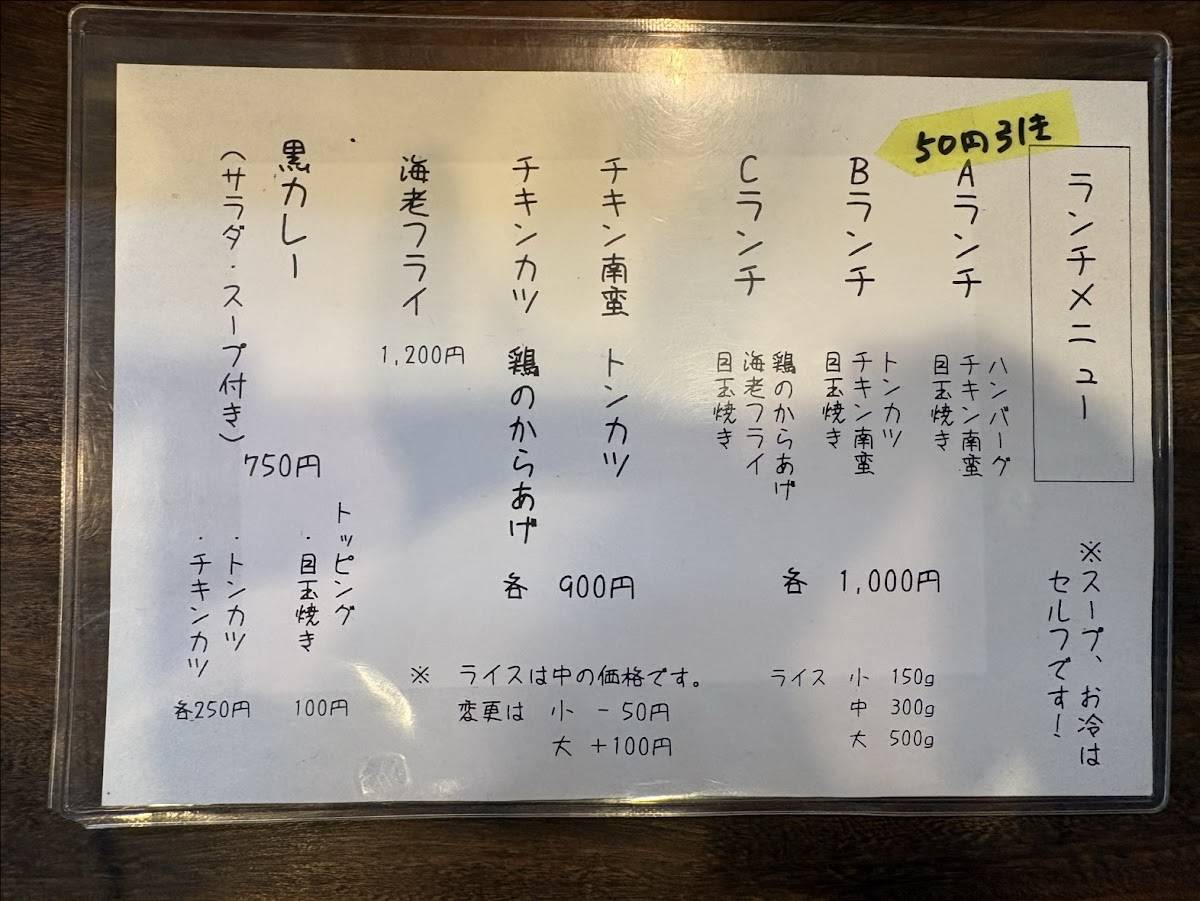 ランチメニュー
※スープ、お冷は
セルフです！
50円引き
Aランチ
ハンバーグ
チキン南蛮
目玉焼き
Bランチ
トンカツ
チキン南蛮
目玉焼き
Cランチ
鶏のからあげ
海老フライ
目玉焼き
各 1,000円
チキン南蛮 トンカツ
チキンカツ 鶏のからあげ
各 900円
海老フライ 1,200円
ライス 小 150g
中 300g
大 500g
※ ライスは中の価格です。
変更は 小 －50円
大 ＋100円
黒カレー
（サラダ・スープ付き）
750円
トッピング
・目玉焼き 100円
・トンカツ
・チキンカツ
各250円